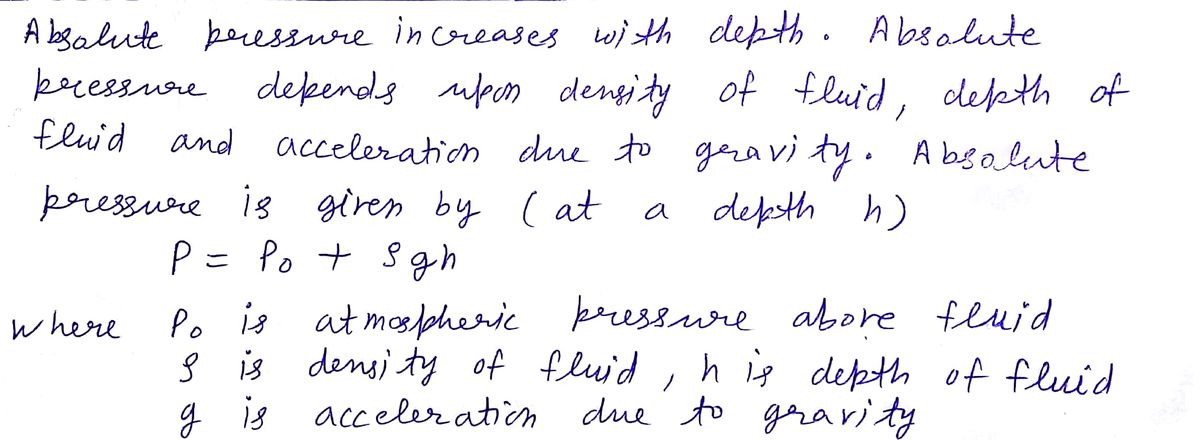 Absolute pressure increases with depth. Absolute
pressure depends upon density of fluid, depth of
fluid and acceleration due to gravity. Absolute
pressure is given by (at a depth h)
P = P₀ + ρgh
where P₀ is atmospheric pressure above fluid
ρ is density of fluid, h is depth of fluid
g is acceleration due to gravity